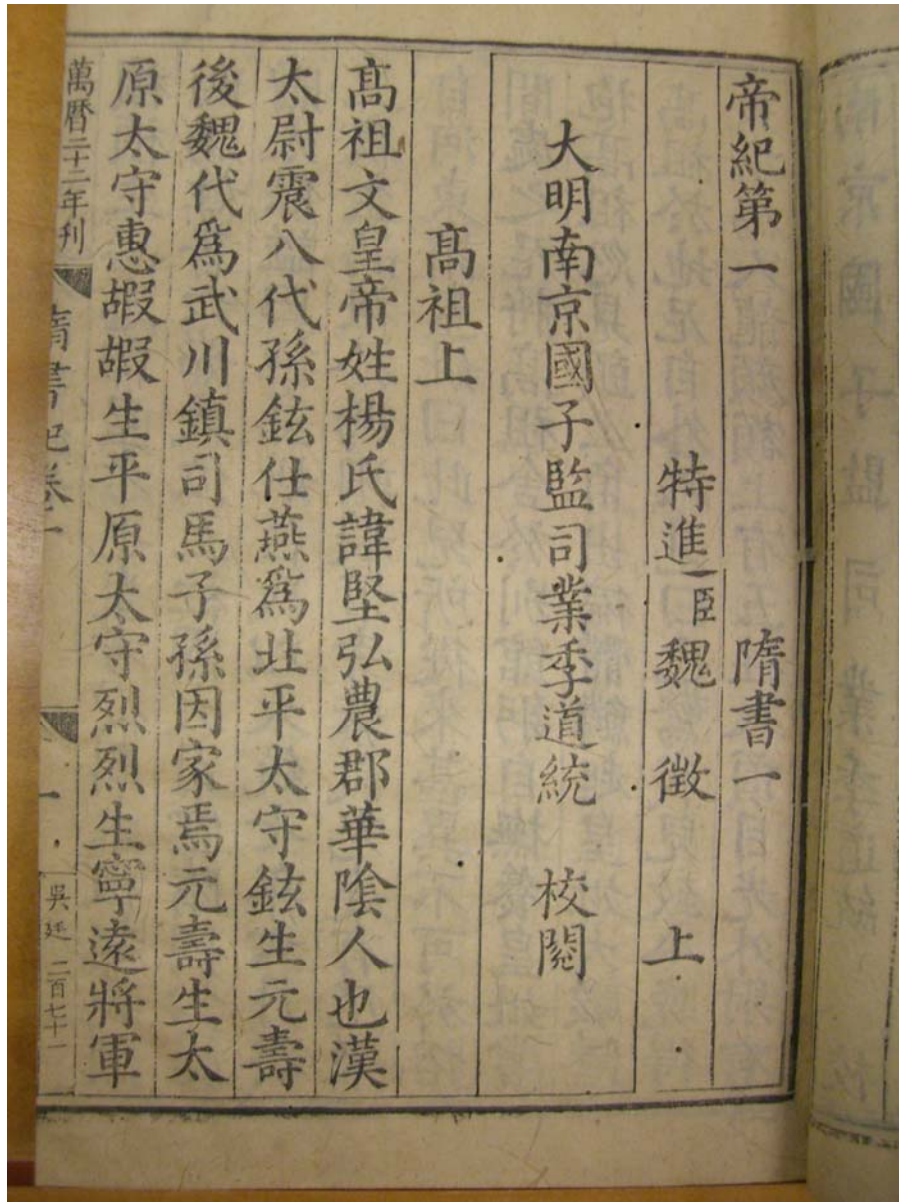 帝紀第一 隋書一
特進臣魏徵上
大明南京國子監司業季道統 校閱
髙祖上
髙祖文皇帝姓楊氏諱堅弘農郡華陰人也漢
太尉震八代孫鉉仕燕爲北平太守鉉生元壽
後魏代爲武川鎮司馬子孫因家焉元壽生太
原太守惠嘏嘏生平原太守烈烈生寧遠將軍
萬曆二十二年刊
隋書紀卷一
一
吳廷 二百七十一